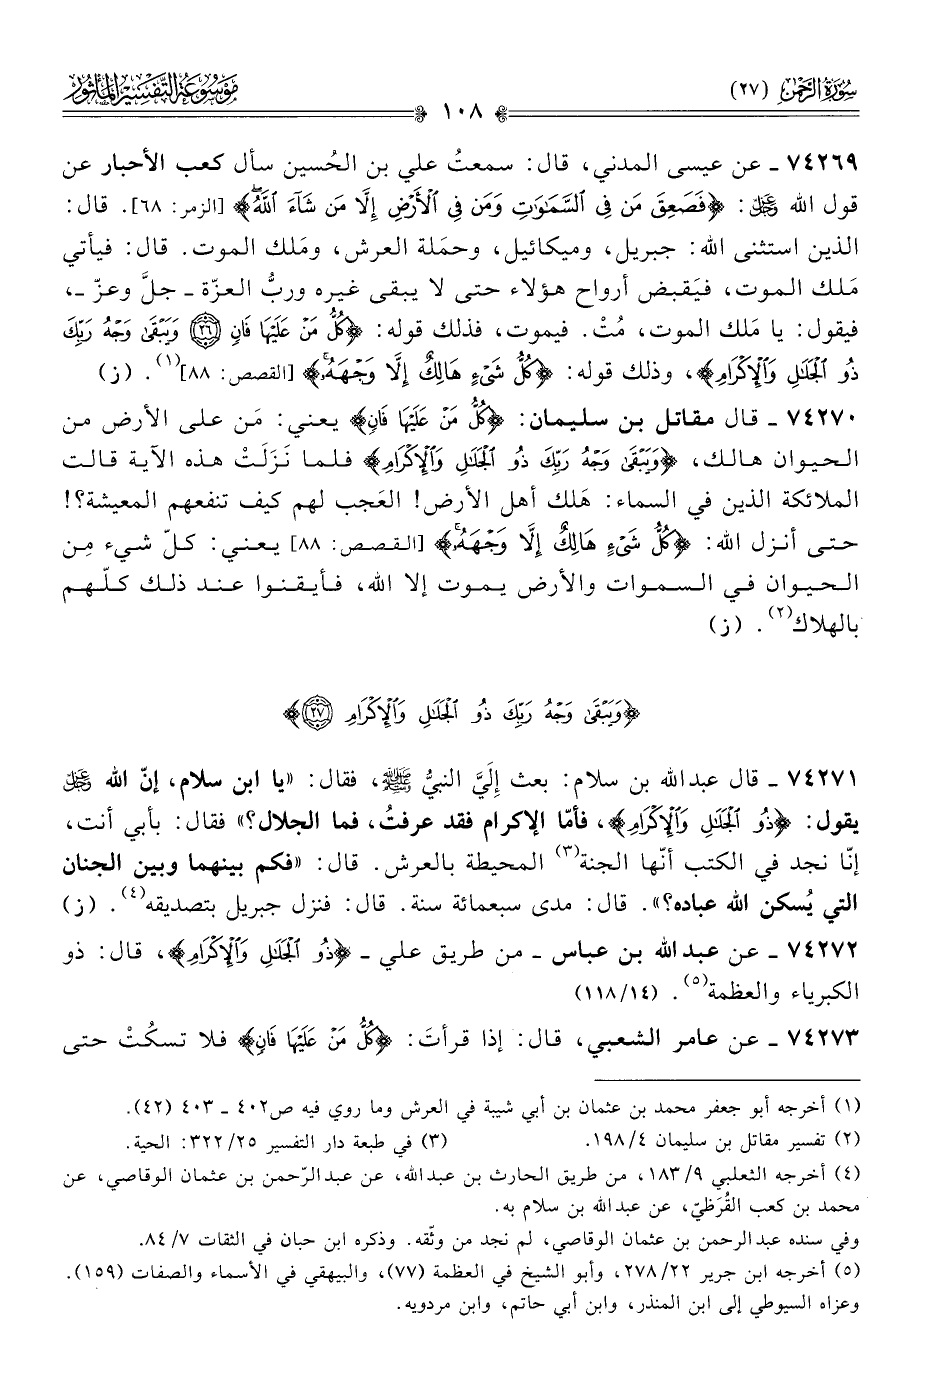 سُورَةُ الرَّحْمٰن (٢٧)
مَوْسُوعَةُ التَّفْسِيرِ المَأْثُورِ
١٠٨
٧٤٢٦٩ ـ عن عيسى المدني، قال: سمعتُ علي بن الحُسين سأل كعب الأحبار عن
قول الله ﷿: ﴿فَصَعِقَ مَن فِي ٱلسَّمَٰوَٰتِ وَمَن فِي ٱلۡأَرۡضِ إِلَّا مَن شَآءَ ٱللَّهُۖ﴾ [الزمر: ٦٨]. قال:
الذين استثنى الله: جبريل، وميكائيل، وحمَلة العرش، ومَلك الموت. قال: فيأتي
مَلك الموت، فيَقبض أرواح هؤلاء حتى لا يبقى غيره وربُّ العزّة ـ جلَّ وعزّ ـ،
فيقول: يا مَلك الموت، مُتْ. فيموت، فذلك قوله: ﴿كُلُّ مَنۡ عَلَيۡهَا فَانٖ ۝٢٦ وَيَبۡقَىٰ وَجۡهُ رَبِّكَ
ذُو ٱلۡجَلَٰلِ وَٱلۡإِكۡرَامِ﴾، وذلك قوله: ﴿كُلُّ شَيۡءٍ هَالِكٌ إِلَّا وَجۡهَهُۥۚ﴾ [القصص: ٨٨](١). (ز)
٧٤٢٧٠ ـ قال مقاتل بن سليمان: ﴿كُلُّ مَنۡ عَلَيۡهَا فَانٖ﴾ يعني: مَن على الأرض من
الحيوان هالك، ﴿وَيَبۡقَىٰ وَجۡهُ رَبِّكَ ذُو ٱلۡجَلَٰلِ وَٱلۡإِكۡرَامِ﴾ فلما نَزَلَتْ هذه الآية قالت
الملائكة الذين في السماء: هَلك أهل الأرض! العَجب لهم كيف تنفعهم المعيشة؟!
حتى أنزل الله: ﴿كُلُّ شَيۡءٍ هَالِكٌ إِلَّا وَجۡهَهُۥۚ﴾ [القصص: ٨٨] يعني: كلّ شيء مِن
الحيوان في السموات والأرض يموت إلا الله، فأيقنوا عند ذلك كلّهم
بالهلاك(٢). (ز)
﴿وَيَبۡقَىٰ وَجۡهُ رَبِّكَ ذُو ٱلۡجَلَٰلِ وَٱلۡإِكۡرَامِ ۝٢٧﴾
٧٤٢٧١ ـ قال عبدالله بن سلام: بعث إِلَيَّ النبيُّ ﷺ، فقال: «يا ابن سلام، إنّ الله ﷿
يقول: ﴿ذُو ٱلۡجَلَٰلِ وَٱلۡإِكۡرَامِ﴾، فأمّا الإكرام فقد عرفتُ، فما الجلال؟» فقال: بأبي أنت،
إنّا نجد في الكتب أنّها الجنة(٣) المحيطة بالعرش. قال: «فكم بينهما وبين الجنان
التي يُسكن الله عباده؟». قال: مدى سبعمائة سنة. قال: فنزل جبريل بتصديقه(٤). (ز)
٧٤٢٧٢ ـ عن عبدالله بن عباس ـ من طريق علي ـ ﴿ذُو ٱلۡجَلَٰلِ وَٱلۡإِكۡرَامِ﴾، قال: ذو
الكبرياء والعظمة(٥). (١١٨/١٤)
٧٤٢٧٣ ـ عن عامر الشعبي، قال: إذا قرأتَ: ﴿كُلُّ مَنۡ عَلَيۡهَا فَانٖ﴾ فلا تسكُتْ حتى
(١) أخرجه أبو جعفر محمد بن عثمان بن أبي شيبة في العرش وما روي فيه ص٤٠٢ ـ ٤٠٣ (٤٢).
(٢) تفسير مقاتل بن سليمان ١٩٨/٤. (٣) في طبعة دار التفسير ٣٢٢/٢٥: الحية.
(٤) أخرجه الثعلبي ١٨٣/٩، من طريق الحارث بن عبدالله، عن عبدالرّحمن بن عثمان الوقاصي، عن
محمد بن كعب القُرَظيّ، عن عبدالله بن سلام به.
وفي سنده عبدالرحمن بن عثمان الوقاصي، لم نجد من وثّقه. وذكره ابن حبان في الثقات ٨٤/٧.
(٥) أخرجه ابن جرير ٢٧٨/٢٢، وأبو الشيخ في العظمة (٧٧)، والبيهقي في الأسماء والصفات (١٥٩).
وعزاه السيوطي إلى ابن المنذر، وابن أبي حاتم، وابن مردويه.